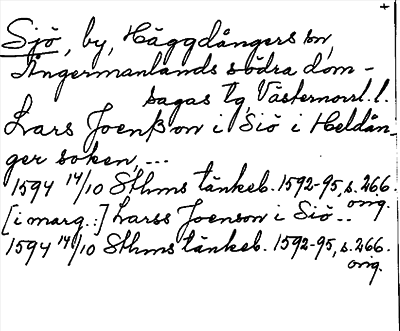 +
Sjö, by, Häggdångers sn,
Ångermanlands södra dom-
sagas tg, Västernorrl. l.
Lars Joenßon i Siö i Heldån-
ger soken, ...
1594 14/10 Sthms tänkeb. 1592-95, s. 266.
orig.
[i marg.:] Larss Joenson i Siö..
1594 14/10 Sthms tänkeb. 1592-95, s. 266.
orig.